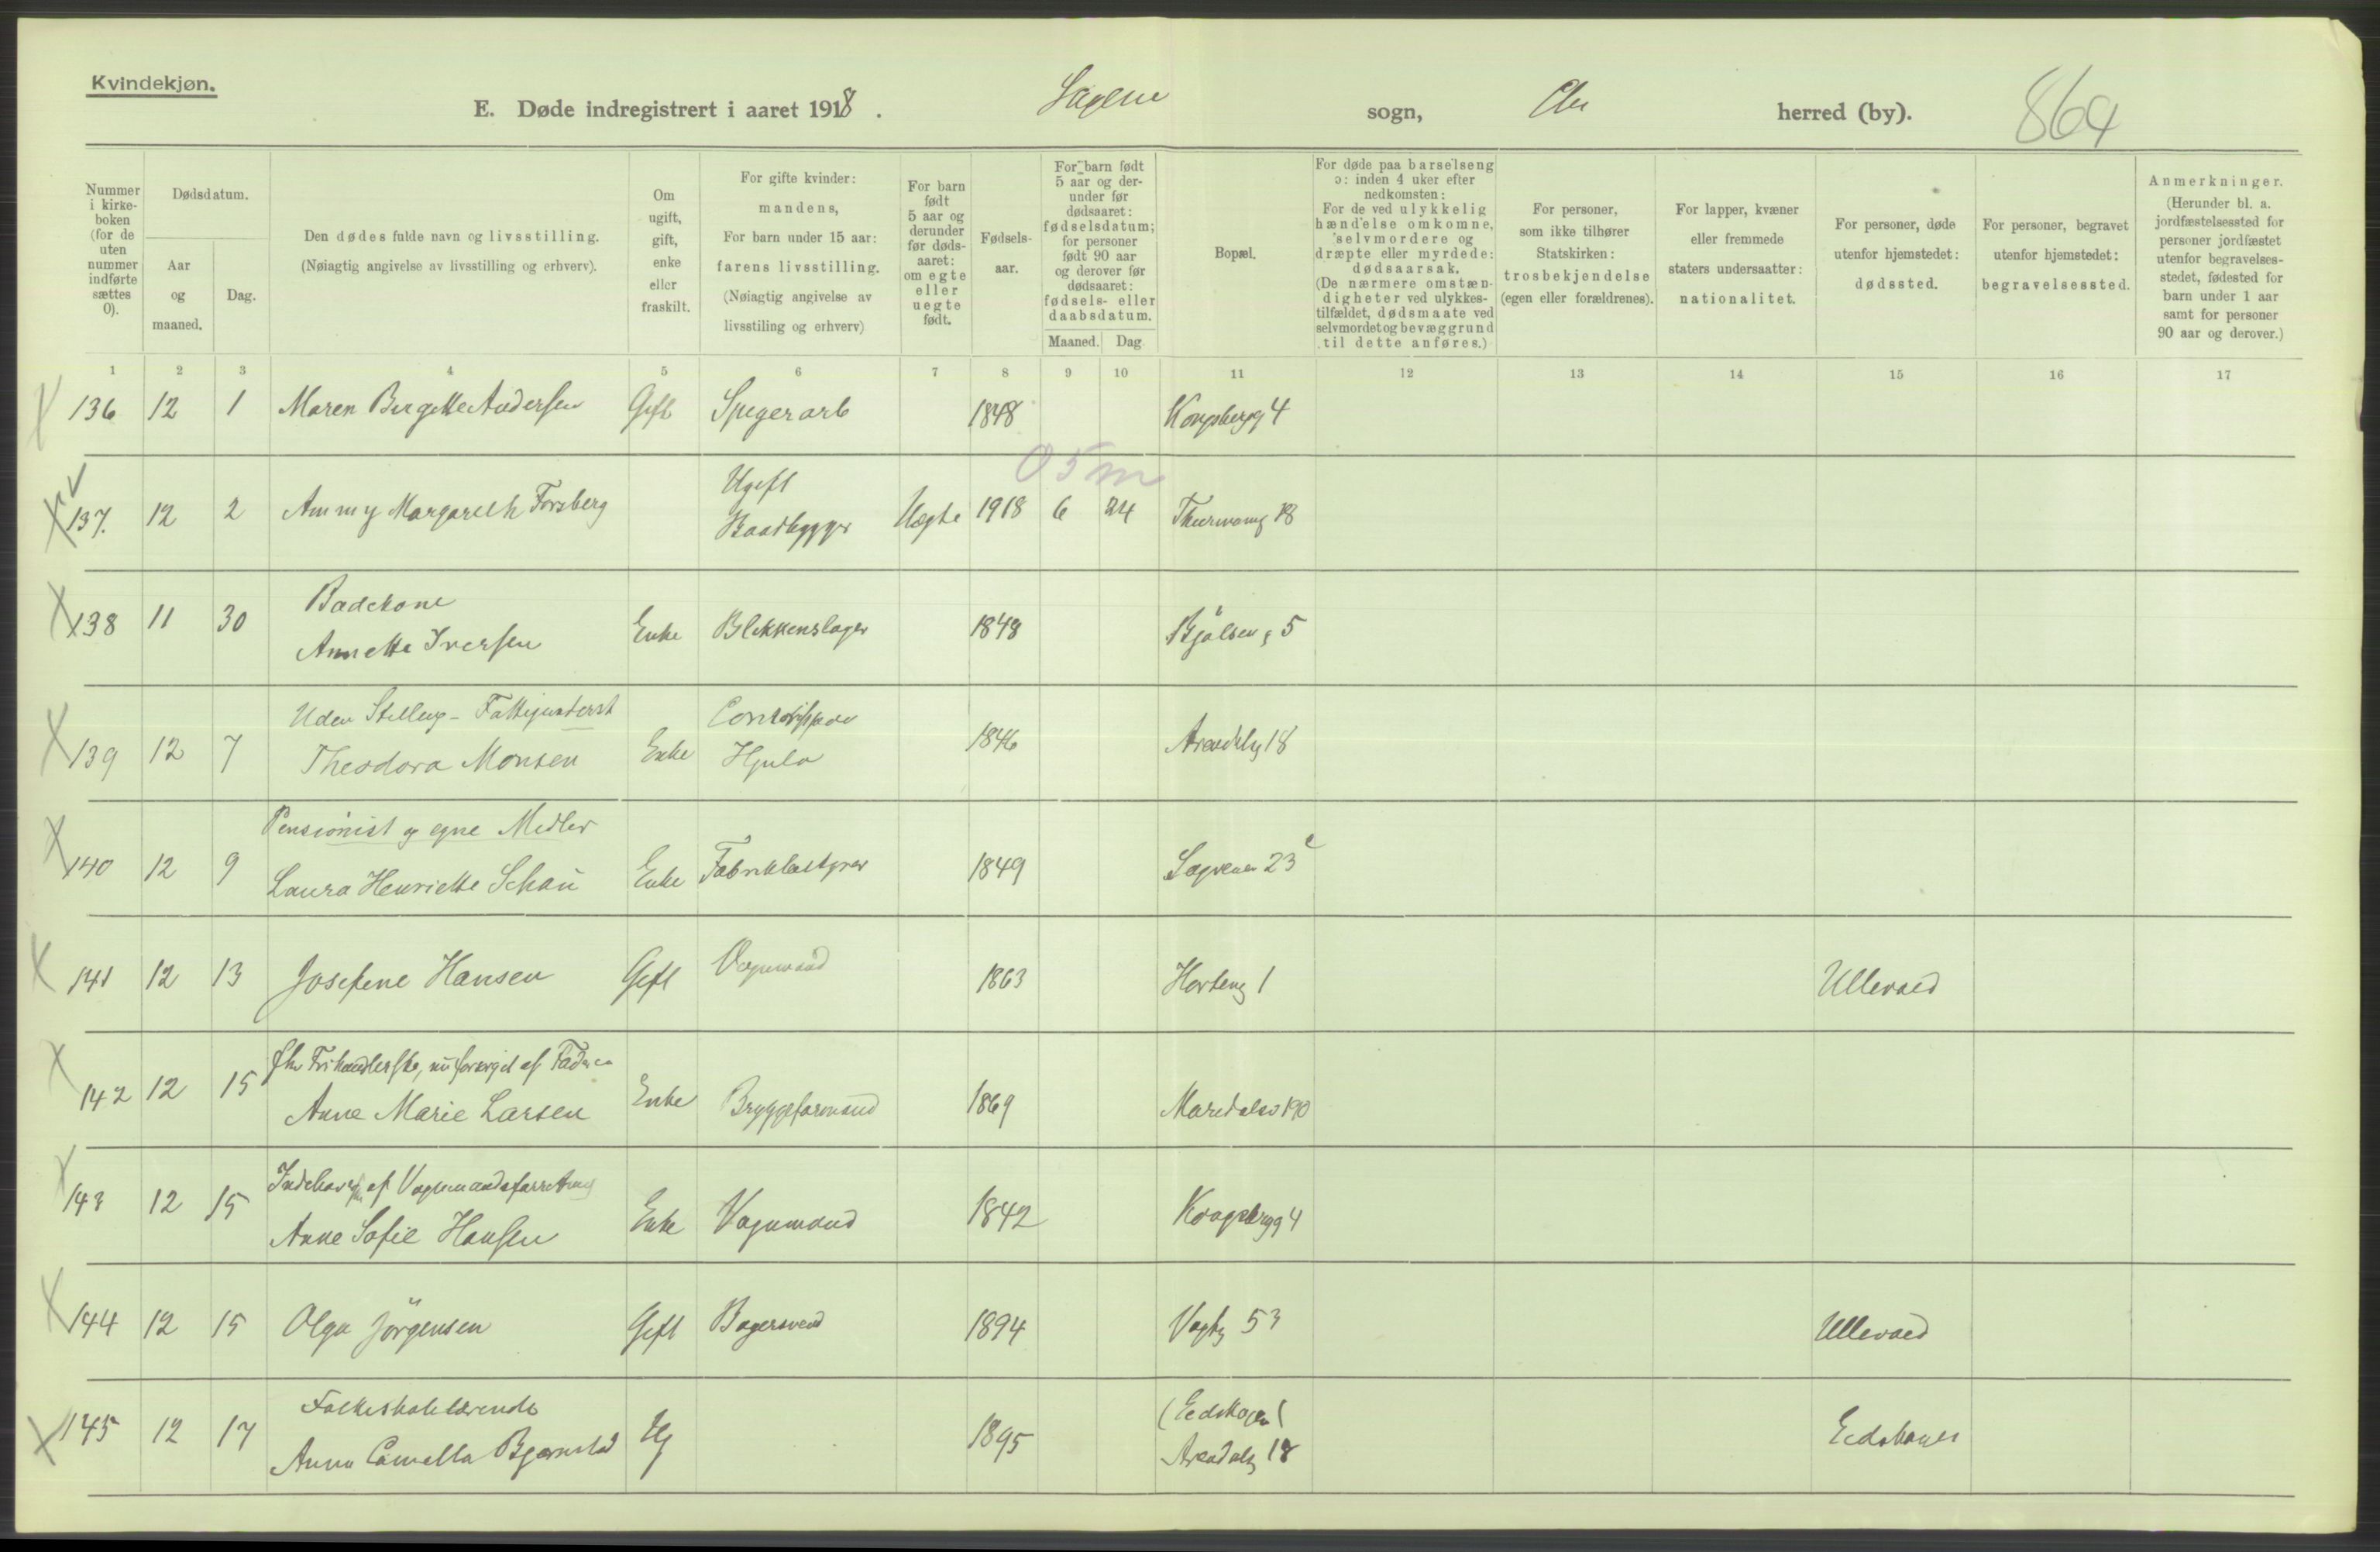 Kvindekjøn.
E. Døde indregistrert i aaret 1918.
Sagene sogn,
herred (by).
864
Nummer i kirke-boken (for de uten nummer indførte sættes 0).
Dødsdatum.
Aar og maaned.
Dag.
Den dødes fulde navn og livsstilling.
(Nøiagtig angivelse av livsstilling og erhverv).
Om ugift, gift, enke eller fraskilt.
For gifte kvinder: mandens,
For barn under 15 aar: farens livsstilling.
(Nøiagtig angivelse av livsstiling og erhverv)
For barn født 5 aar og derunder før døds-aaret: om egte eller uegte født.
Fødsels-aar.
For barn født 5 aar og der-under før dødsaaret: fødselsdatum; for personer født 90 aar og derover før dødsaaret: fødsels- eller daabsdatum.
Maaned. Dag
Bopæl.
For døde paa barselseng ɔ: inden 4 uker efter nedkomsten:
For de ved ulykkelig hændelse omkomne, selvmordere og dræpte eller myrdede: dødsaarsak.
(De nærmere omstæn-digheter ved ulykkes-tilfældet, dødsmaate ved selvmordet og bevæggrund til dette anføres.)
For personer, som ikke tilhører Statskirken: trosbekjendelse (egen eller forældrenes).
For lapper, kvæner eller fremmede staters undersaatter: nationalitet.
For personer, døde utenfor hjemstedet: dødssted.
For personer, begravet utenfor hjemstedet: begravelsessted.
Anmerkninger.
(Herunder bl. a. jordfæstelsessted for personer jordfæstet utenfor begravelses-stedet, fødested for barn under 1 aar samt for personer 90 aar og derover.)
1 2 3 4 5 6 7 8 9 10 11 12 13 14 15 16 17
136 12 1 Maren Birgitte Andersen Gift 1848 Kongsbergg 4
0 5 m
Ugift
137. 12 2 Margareth Forsberg Baadbygger Uegte 1918 6 24 18
Badekone
138 11 30 Annette Iversen Enke Blikkenslager 1848 Bjølsen g 5
Uden Stilling - Fattigunderst
139 12 7 Theodora Monsen Enke Hjula 1846 Arendalsg 18
Pensionist og egne Midler
140 12 9 Laura Henriette Schau Enke 1849 Sagveien 23 c
141 12 13 Josefine Hansen Gift Vognmand 1863 Horteng 1 Ullevaal
142 12 15 Anne Marie Larsen Enke Bryggeformand 1869 Maridalsv 190
Indehaverske af Vognmandsforretning
143 12 15 Anne Sofie Hansen Enke Vognmand 1842 Kongsbergg 4
144 12 15 Olga Jörgensen Gift Bagersvend 1894 Vogtsg 53 Ullevaal
Folkeskolelærerinde
(Eidskogen)
145 12 17 Anna Camilla Bjørnstad Ug 1895 Arendalsg 18 Eidskogen